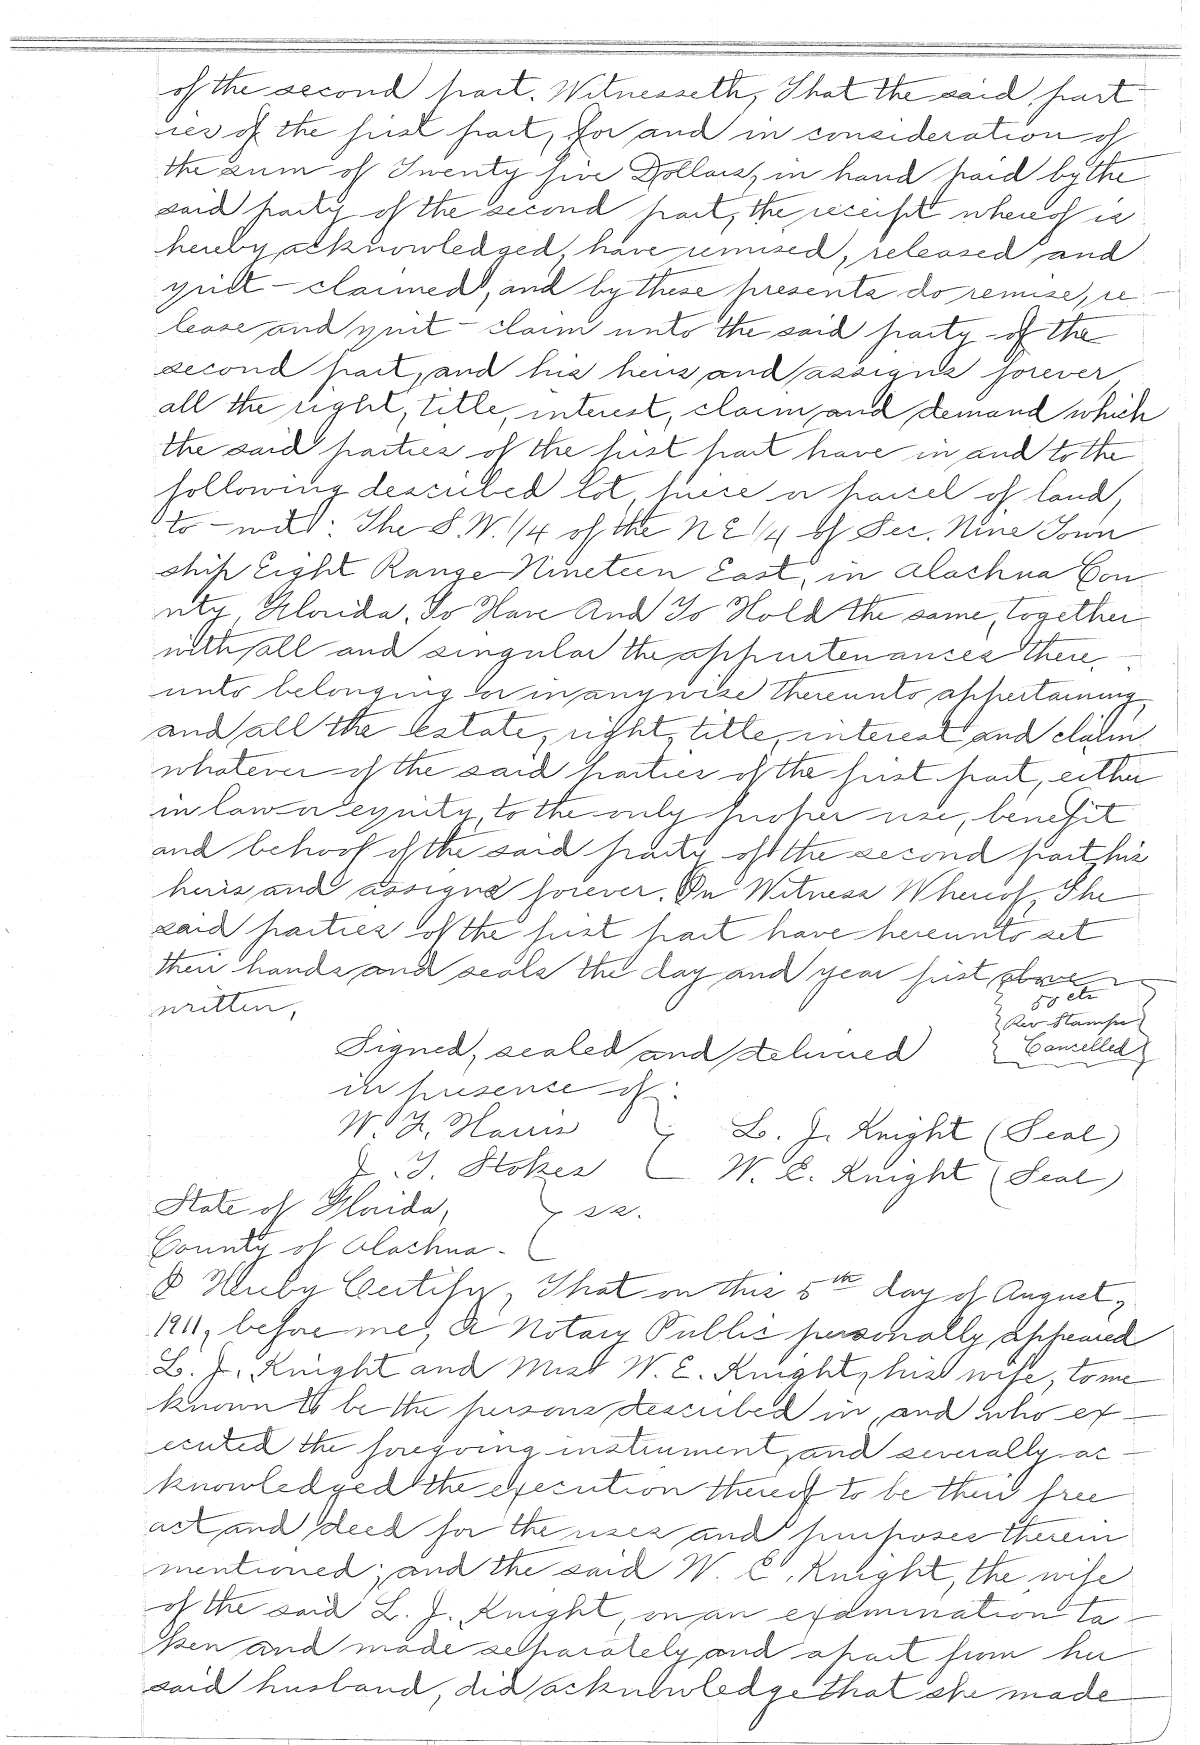 of the second part. Witnesseth, That the said part
ies of the first part, for and in consideration of
the sum of Twenty five Dollars, in hand paid by the
said party of the second part, the receipt whereof is
hereby acknowledged, have remised, released and
quit-claimed, and by these presents do remise, re-
lease and quit-claim unto the said party of the
second part, and his heirs and assigns forever,
all the right, title, interest, claim and demand which
the said parties of the first part have in and to the
following described lot, piece or parcel of land,
to-wit: The S.W. 1/4 of the N E 1/4 of Sec. Nine Town
ship Eight Range Nineteen East, in Alachua Cou
nty, Florida. To Have And To Hold the same, together
with all and singular the appurtenances there-
unto belonging or in anywise thereunto appertaining,
and all the estate, right, title, interest and claim
whatever of the said parties of the first part, either
in law or equity, to the only proper use, benefit
and behoof of the said party of the second part, his
heirs and assigns forever. In Witness Whereof, The
said parties of the first part have hereunto set
their hands and seals the day and year first above
written,
50 cts
Rev. Stamps
Cancelled
Signed, sealed and delivered
in presence of:
W. F. Harris } L. J. Knight (Seal)
J. T. Stokes } W. E. Knight (Seal)
State of Florida, } ss.
County of Alachua.
I Hereby Certify, That on this 5th day of August,
1911, before me, A Notary Public personally appeared
L. J. Knight and Miss W. E. Knight, his wife, to me
known to be the persons described in, and who ex-
ecuted the foregoing instrument, and severally ac-
knowledged the execution thereof to be their free
act and deed for the uses and purposes therein
mentioned; and the said W. E. Knight, the wife
of the said L. J. Knight, on an examination ta-
ken and made separately and apart from her
said husband, did acknowledge that she made